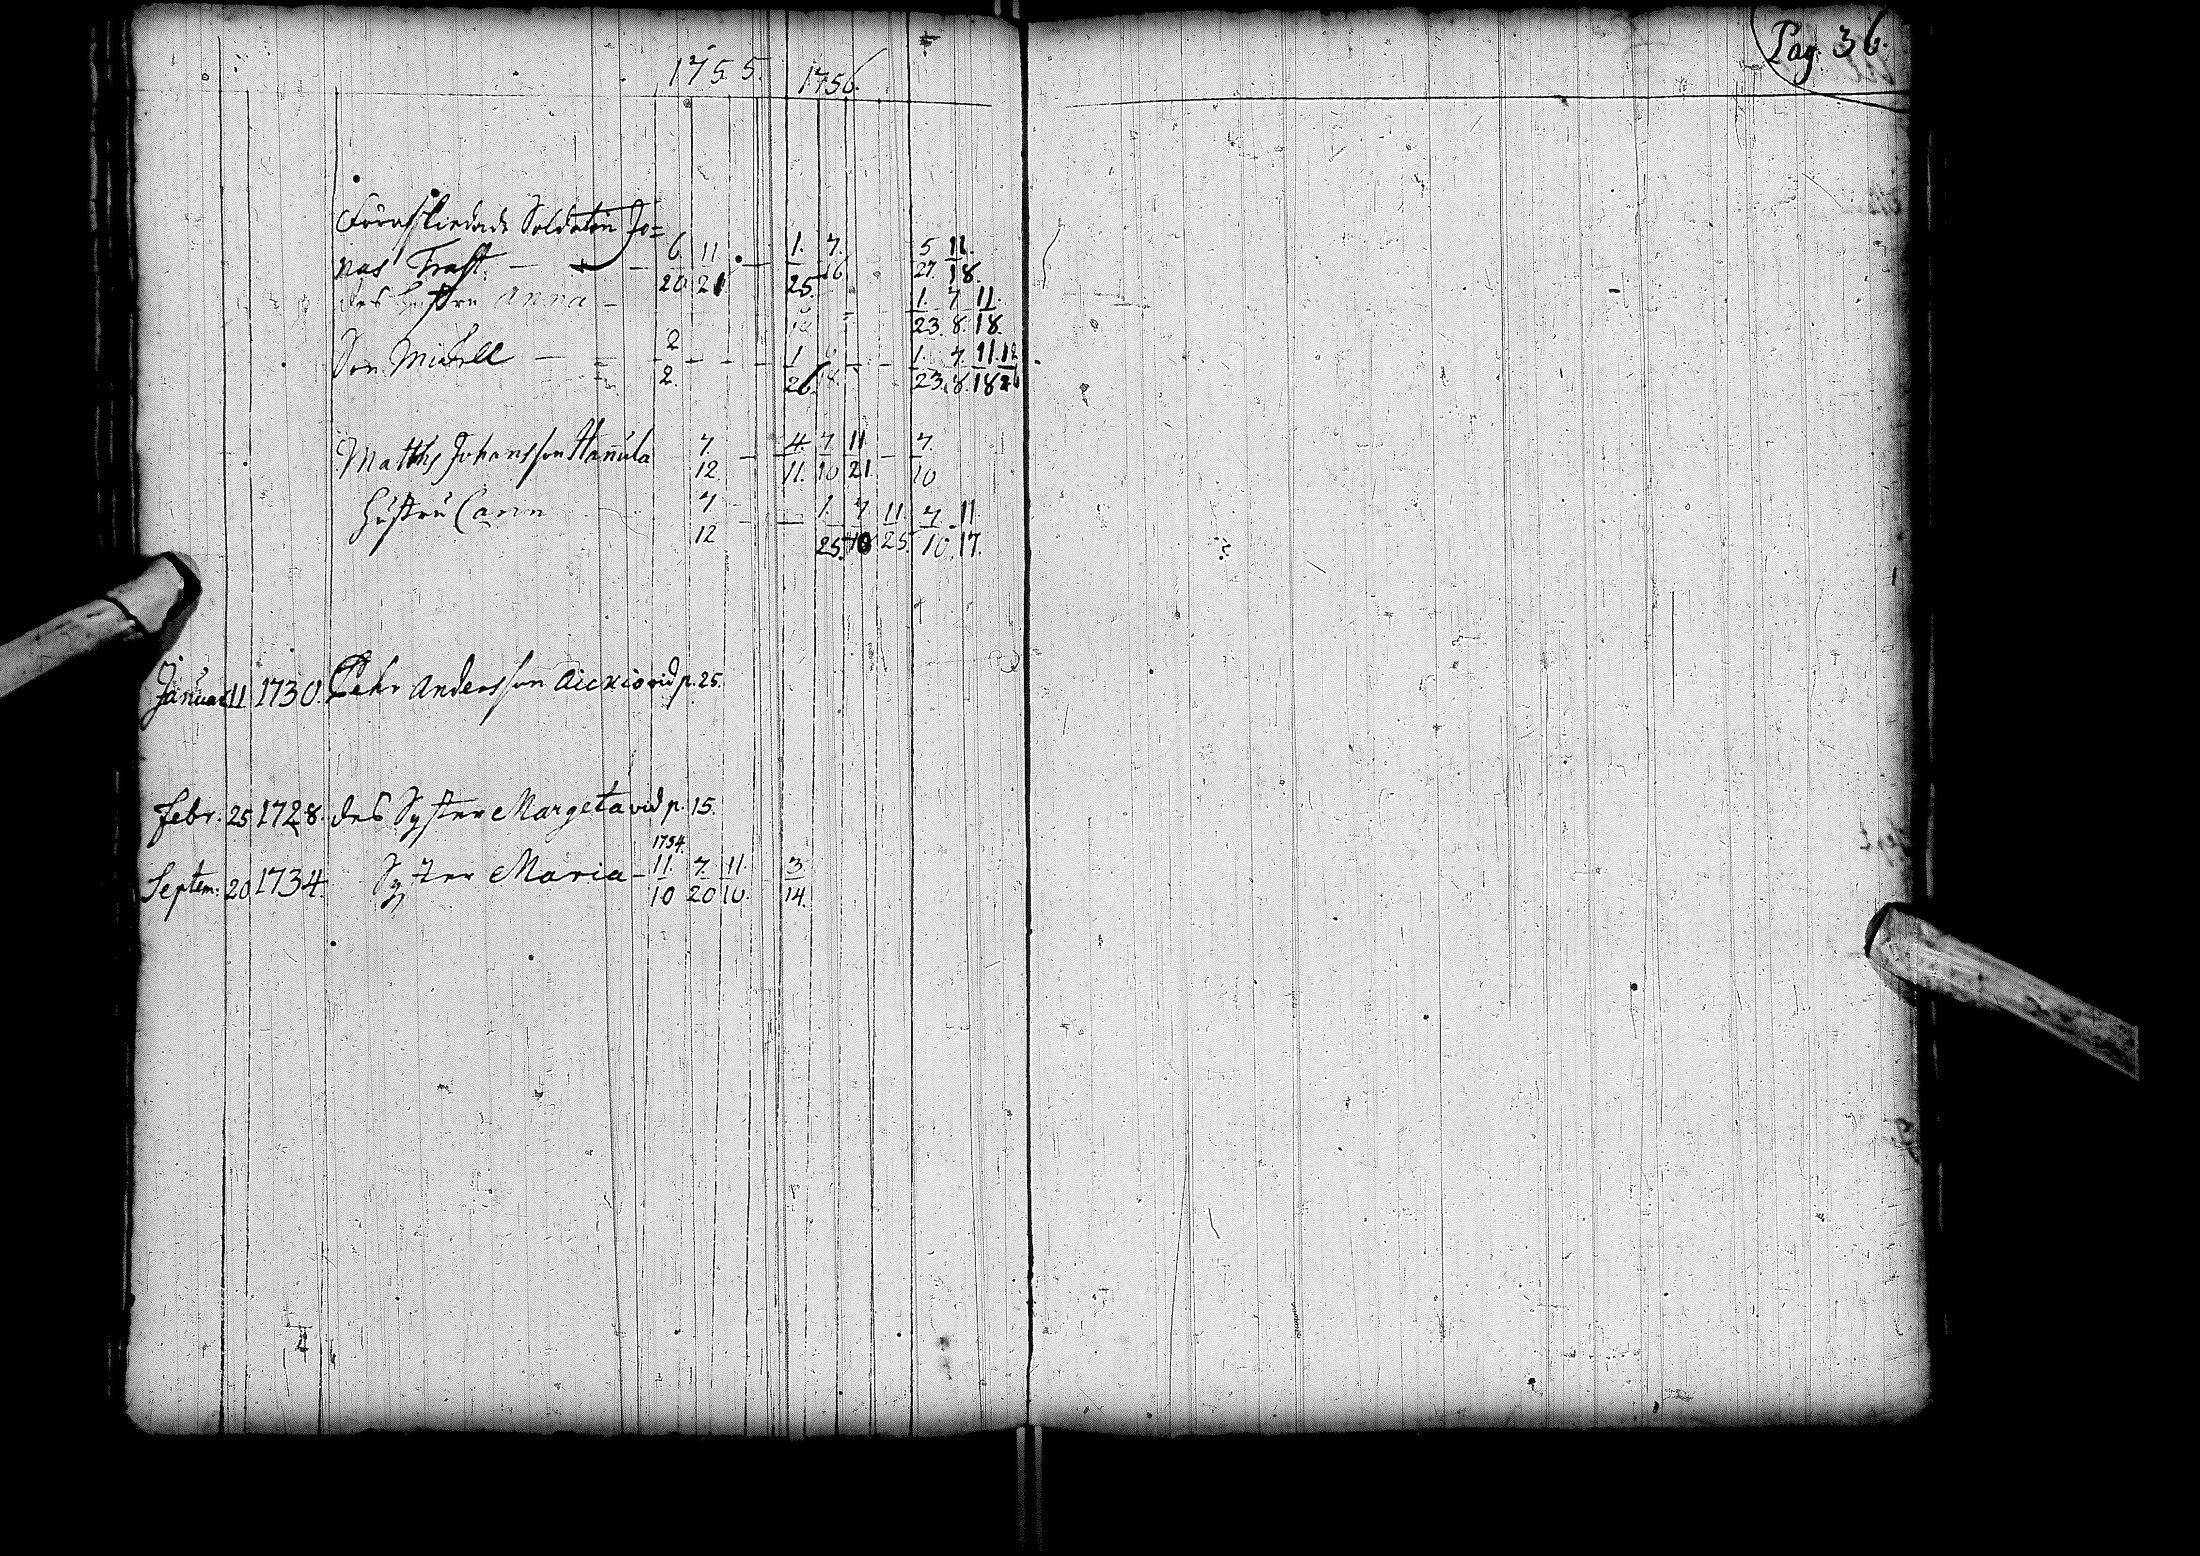 1755. 1756.
Pag. 36.
Förafskiedade Soldaten Jo=
nas Trast. — — 6/20 11/21 — 1./25. 7./16 5/27. 11./18.
des hustru Anna — 1./23. 7/8. 11./18.
Son Michell — = 2/2. — — — 1/26. /18. — — 1./23. 7./8. 11./18 12/26
Matths Johansson Hannula 7./12. — 4./11. 7/10 11/21. — 7./10
hustru Carin 7/12 — — 1./25. 7/10 11/25. 7/10. 11./17.
Januar 11 1730. Pehr Andersson Aickio vid p. 25.
Febr. 25 1728. des Syster Margeta vid p. 15.
1754.
Septem: 20 1734. Syster Maria — 11./10 7./20 11./10. 3/14.